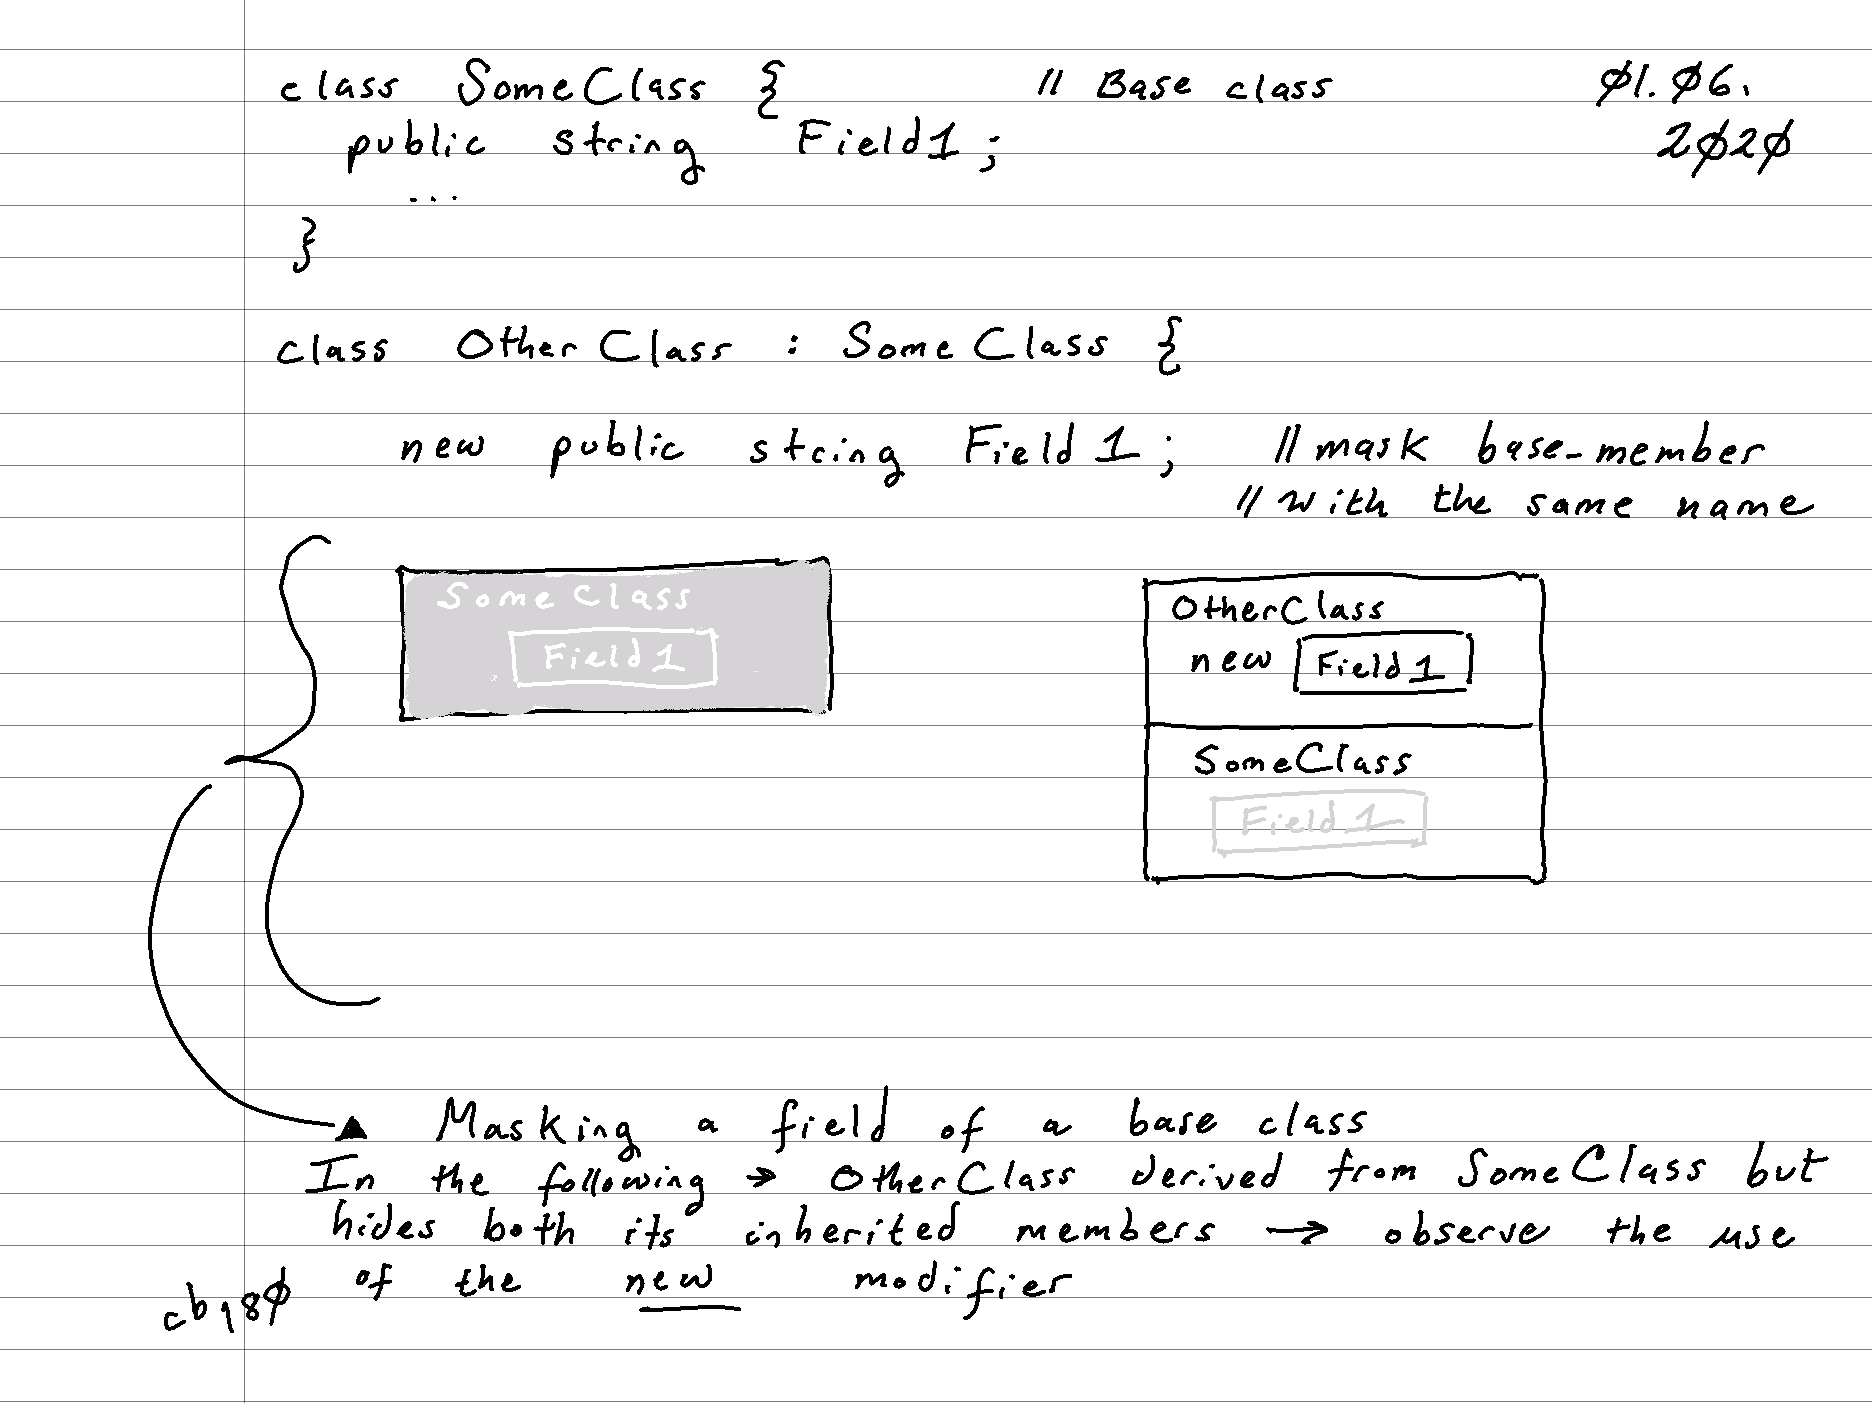 class SomeClass { // Base class ø1.ø6.
public string Field1; 2ø2ø
...
}
class OtherClass : SomeClass {
new public string Field1; // mask base-member
// with the same name
SomeClass
Field1
OtherClass
new Field1
SomeClass
Field1
▲ Masking a field of a base class
In the following → OtherClass derived from SomeClass but
hides both its inherited members → observe the use
of the new modifier